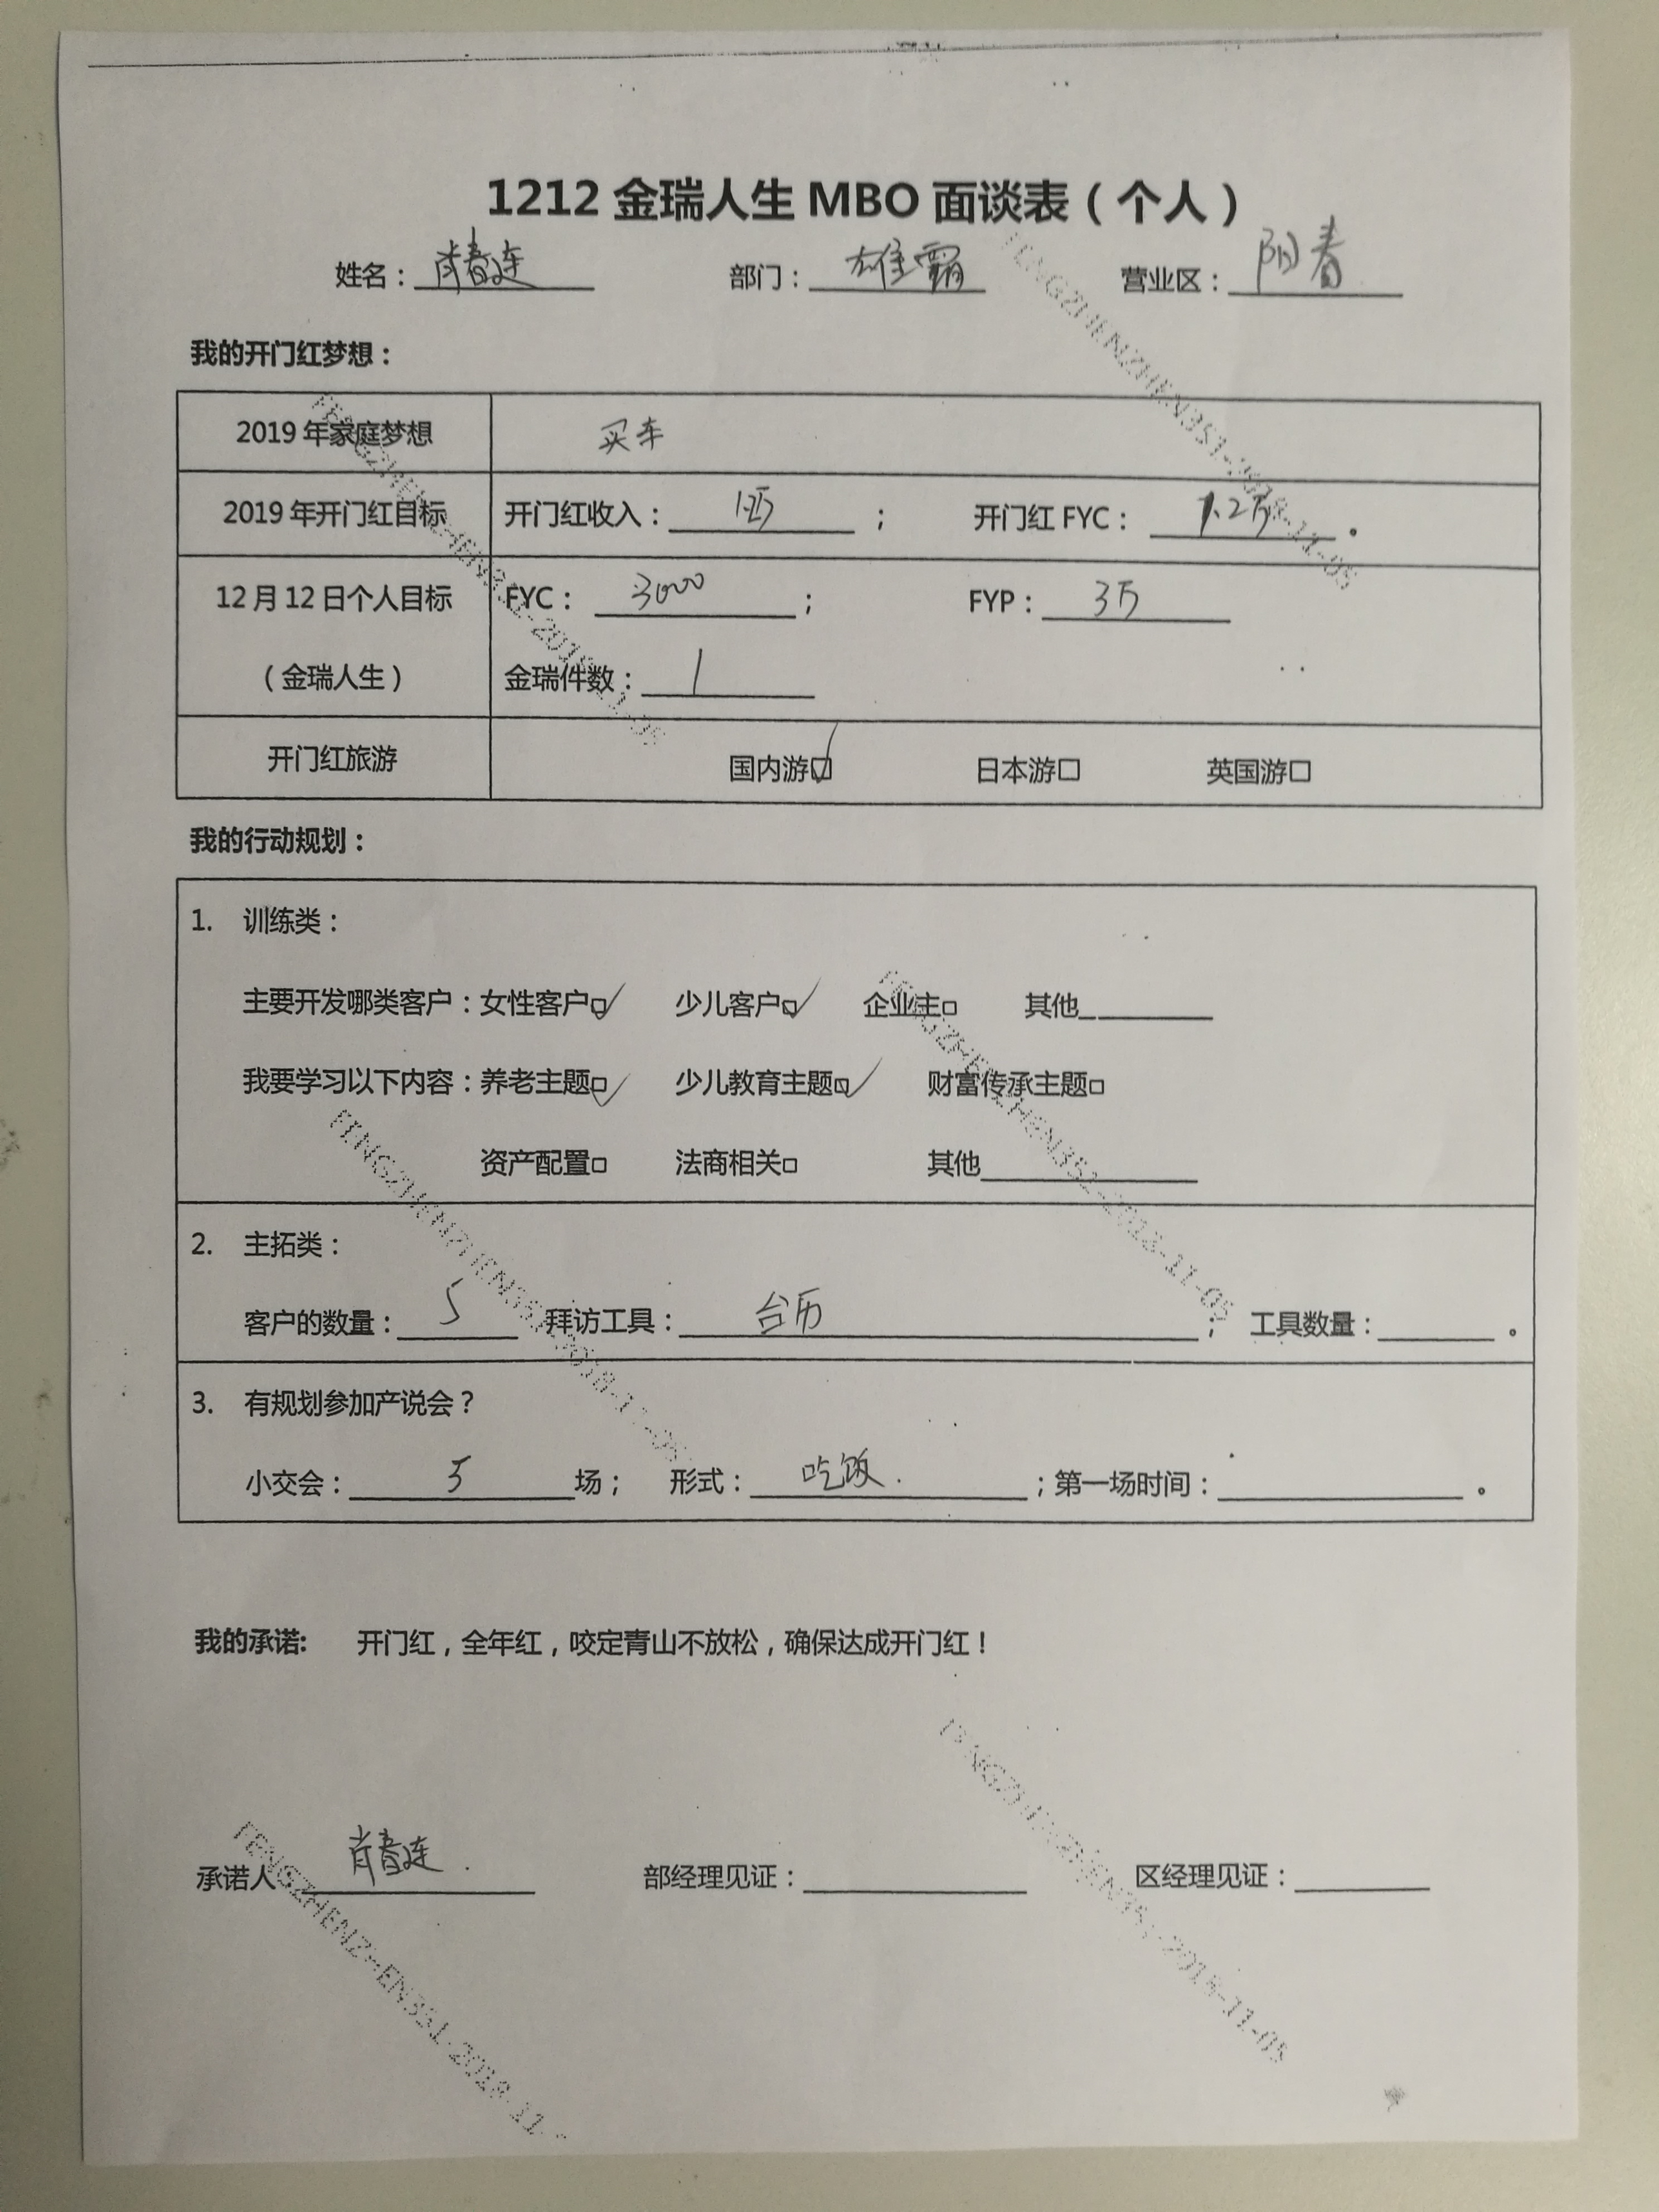 1212 金瑞人生 MBO 面谈表（个人）
姓名：肖春连 部门：雄霸 营业区：阳春
我的开门红梦想：
2019 年家庭梦想 买车
2019 年开门红目标 开门红收入： ； 开门红 FYC：1.2万。
12 月 12 日个人目标 FYC：3000； FYP：3万
（金瑞人生） 金瑞件数：1
开门红旅游 国内游☑ 日本游□ 英国游□
我的行动规划：
1. 训练类：
主要开发哪类客户：女性客户☑ 少儿客户☑ 企业主□ 其他
我要学习以下内容：养老主题☑ 少儿教育主题☑ 财富传承主题□
资产配置□ 法商相关□ 其他
2. 主拓类：
客户的数量：5 拜访工具：台历； 工具数量：。
3. 有规划参加产说会？
小交会：5场； 形式：吃饭.；第一场时间：。
我的承诺: 开门红，全年红，咬定青山不放松，确保达成开门红！
承诺人 肖春连. 部经理见证： 区经理见证：
FENGZHENZHEN351-2018-11-05
FENGZHENZHEN351-2018-11-05
FENGZHENZHEN351-2018-11-05
FENGZHENZHEN351-2018-11-05
FENGZHENZHEN351-2018-11-05
FENGZHENZHEN351-2018-11-